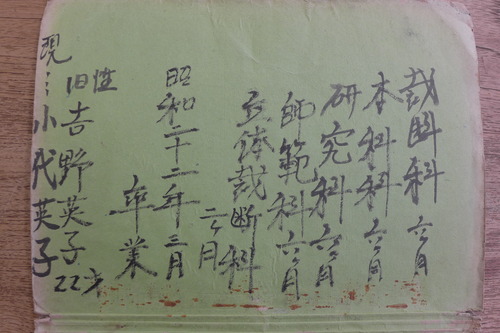 裁断科 六ヶ月
本科科 六ヶ月
研究科 六ヶ月
師範科 六ヶ月
立体裁断科
六ヶ月
昭和二十二年三月
卒業
旧性 吉野英子 22才
現:小代英子